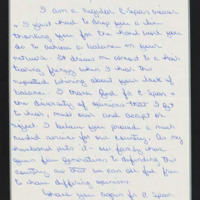 I am a regular C Span viewer
& I just had to drop you a line
thanking you for the hard work you
do to achieve a balance on your
network. It draws me almost to a hair
tearing frenzy when I hear the
repeated whining about your lack of
balance. I thank God for C Span &
the diversity of opinions that I get
to hear, mull over and accept or
reject. I believe you provide a much
needed service for our country. As my
husband puts it - our family has
given four generations to defending this
country so that we can all feel free
to have differing opinions.
Thank you again for C Span